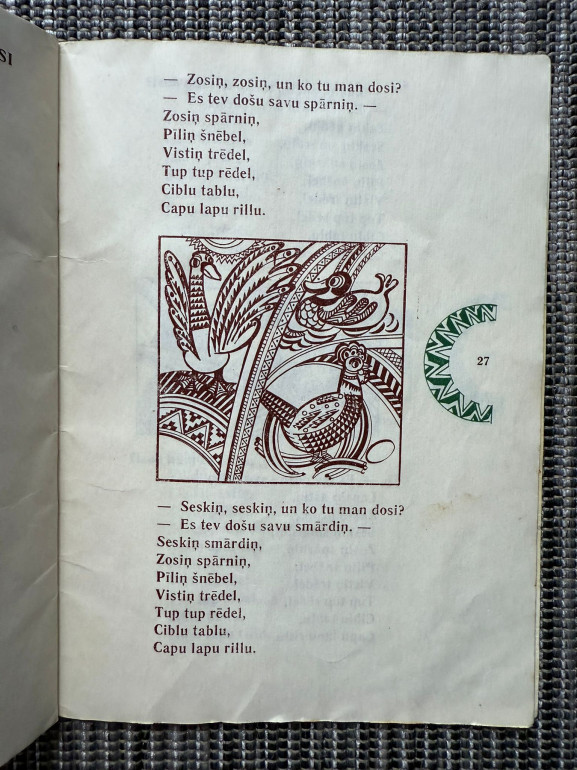 SI
— Zosiņ, zosiņ, un ko tu man dosi?
— Es tev došu savu spārniņ. —
Zosiņ spārniņ,
Pīliņ šnēbel,
Vistiņ trēdel,
Tup tup rēdel,
Ciblu tablu,
Capu lapu rillu.
27
— Seskiņ, seskiņ, un ko tu man dosi?
— Es tev došu savu smārdiņ. —
Seskiņ smārdiņ,
Zosiņ spārniņ,
Pīliņ šnēbel,
Vistiņ trēdel,
Tup tup rēdel,
Ciblu tablu,
Capu lapu rillu.